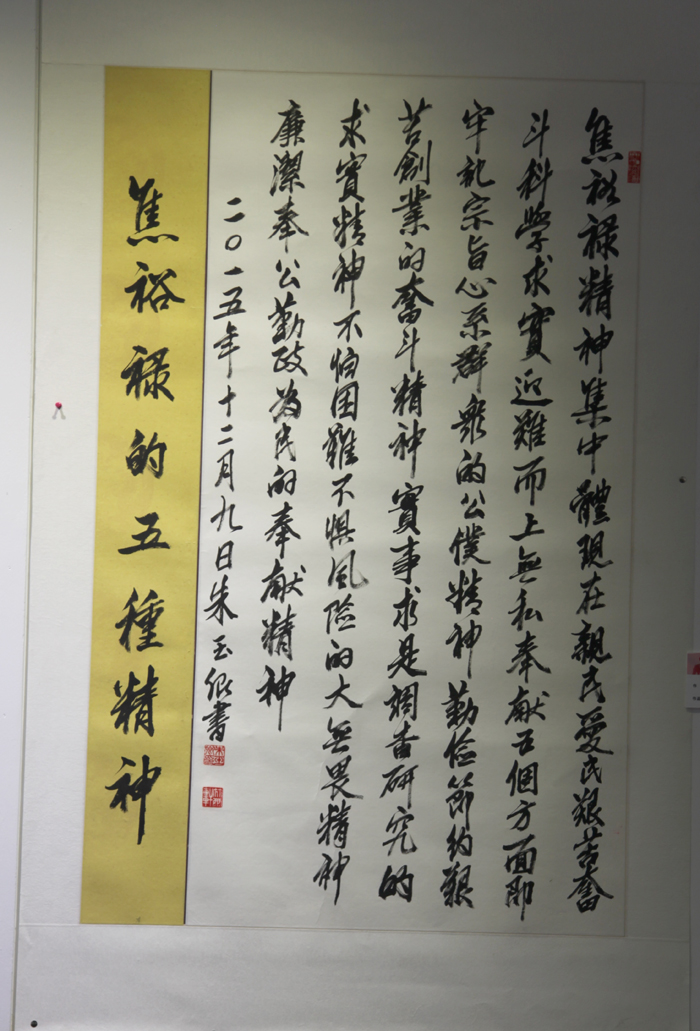 焦裕禄精神集中體現在親民愛民艱苦奮
斗科學求實迎難而上無私奉献五個方面即
牢記宗旨心系群衆的公僕精神勤儉節約艱
苦創業的奮斗精神實事求是調查研究的
求實精神不怕困難不惧風險的大無畏精神
廉潔奉公勤政為民的奉献精神
二〇一五年十二月九日朱玉書
焦裕禄的五種精神